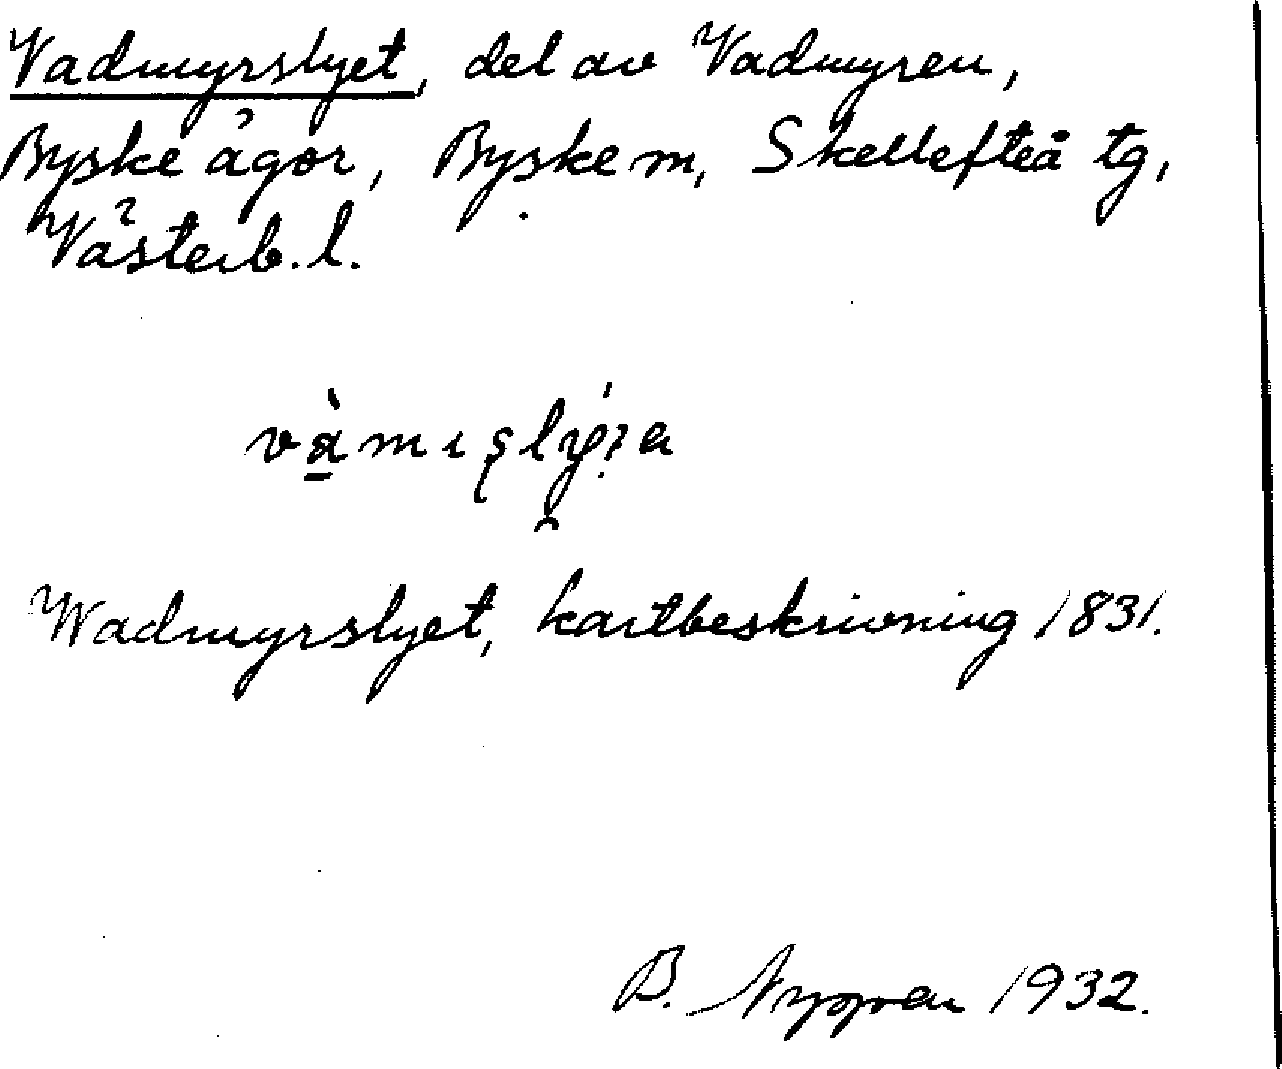 Vadmyrslyet, del av Vadmyren,
Byske ägor, Byske m, Skellefteå tg,
Västerb. l.
Wadmyrslyet, kartbeskrivning 1831.
B. 1932.